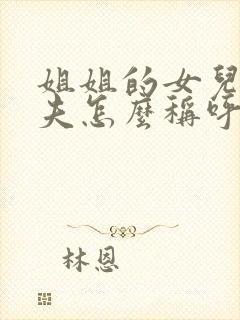 姐姐的女兒
夫怎麼稱呼
林恩